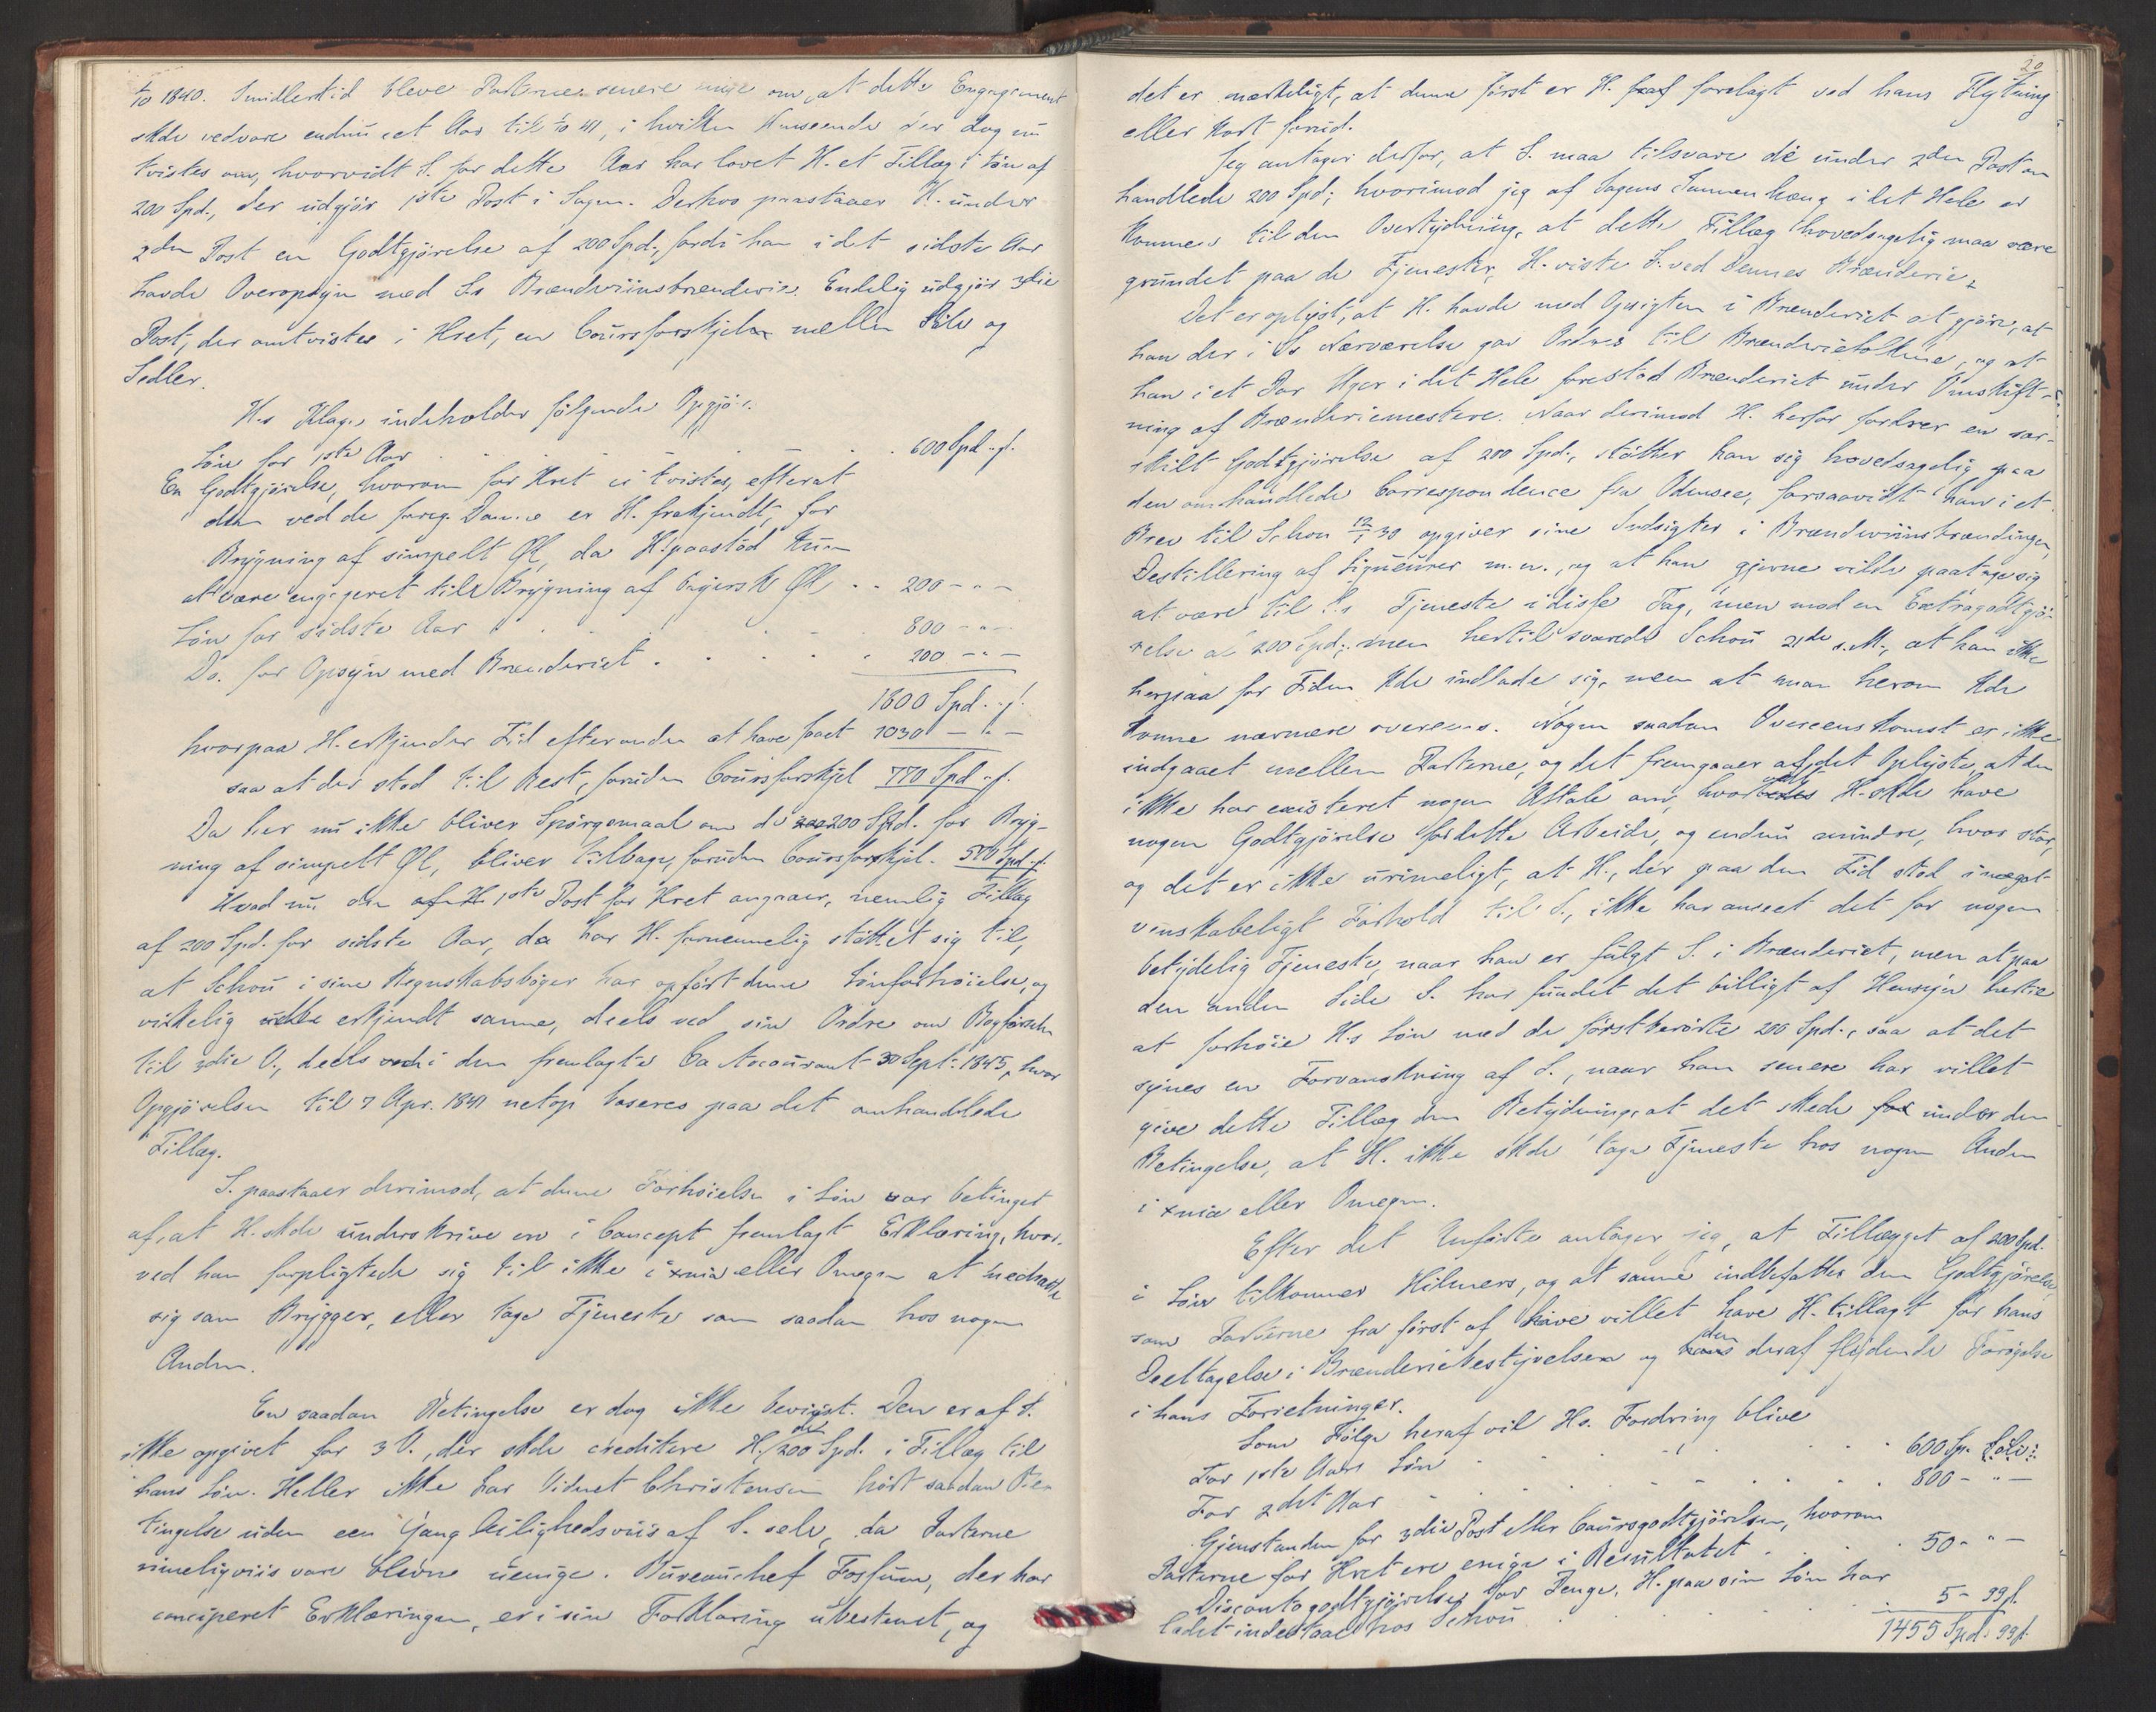 1/10 1840. Imidlertid bleve Parterne senere enige om, at dette Engagement
skde vedvare endnu eet Aar til 1/10 41, i hvilken Henseende der dog nu
tvistes om, hvorvidt S. for dette Aar har lovet H. et Tillæg i Løn af
200 Spd., der udgjør 1ste Post i Sagen. Derhos paastaaer H. under
2den Post en Godtgjörelse af 200 Spd., fordi han i det sidste Aar
havde Overopsyn med Ss Brændeviinsbrænderie. Endelig udgjör 3die
Post, der omtvistes i Hret, en Coursforskjel mellem Sölv og
Sedler.
H.s Klage indeholder fölgende Opgjör.
Lön for 1ste Aar . . . 600 Spd. -ſ.
En Godtgjörelse, hvorom for Hret ei tvistes, efterat
den ved de foreg. Domme er H. frakjendt, for
Brygning af simpelt Øl, da H. paastod kun
at være engageret til Brygning af bayersk Øl . . 200 - " -
Lön for sidste Aar . . . 800 - " -
Do. for Opsyn med Brænderiet . . . 200 - " -
1800 Spd. - ſ.
hvorpaa H. erkjender Tid efter anden at have faaet 1030 - " -
saa at der stod til Rest, foruden Coursforskjel 770 Spd. -ſ.
Da her nu ikke bliver Spörgsmaal om de 200 Spd. for Bryg-
ning af simpelt Øl, bliver tilbage, foruden Coursforskjel. 570 Spd. -ſ.
Hvad nu den 1ste Post for Hret angaaer, nemlig Tillæg
af 200 Spd. for sidste Aar, da har H. fornemmelig stöttet sig til,
at Schou i sine Regnskabsböger har opfört denne Lönforhöielse, og
virkelig erkjendt samme, deels ved sin Ordre om Bogförseln
til 3die V., deels i den fremlagte Ca Accourant 30 Sept. 1845, hvor
Opgjörelsen til 7 Apr. 1841 netop baseres paa det omhandlede
Tillæg.
S. paastaaer derimod, at denne Forhöielse i Lön var betinget
af, at H. skde underskrive en i Concept fremlagt Erklæring, hvor-
ved han forpligtede sig til ikke i Xnia eller Omegn at nedsætte
sig som Brygger, eller tage Tjeneste som saadan hos nogen
Anden.
En saadan Betingelse er dog ikke beviist. Den er af S.
ikke opgivet for 3 V., der skde creditere H. de 200 Spd. i Tillæg til
hans Lön. Heller ikke har Vidnet Christensen hört saadan Be-
tingelse uden een Gang leilighedsviis af S. selv, da Parterne
rimeligviis vare blevne uenige. Bureauchef Fossum, der har
conciperet Erklæringen, er i sin Forklaring ubestemt, og
20
det er mærkeligt, at denne först er H. forelagt ved hans Flytning
eller kort forud.
Jeg antager derfor, at S. maa tilsvare de under 2den Post om
handlede 200 Spd; hvorimod jeg af Sagens Sammenhæng i det Hele er
kommen til den Overtydning, at dette Tillæg hovedsagelig maa være
grundet paa de Tjenester, H. viste S. ved dennes Brænderie.
Det er oplyst, at H. havde med Opsigten i Brænderiet at gjöre, at
han der i Ss Nærværelse gav Ordres til Brænderiefolkene, og at
han i et Par Uger i det Hele forestod Brænderiet under Omskift-
ning af Brænderiemestere. Naar derimod H. herfor fordrer en sær-
skilt Godtgjörelse af 200 Spd., stötter han sig hovedsagelig paa
den omhandlede Correspondence fra Odensee, forsaavidt han i et
Brev til Schou 12/1 39 opgiver sine Indsigter i Brændeviinsbrændingen,
Destillering af Liqueurer m. v., og at han gjerne vilde paatage sig
at være til S.s Tjeneste i disse Fag, men mod en Extragodtgjö-
relse af 200 Spd; men hertil svarede Schou 21de s. M., at han ikke
herpaa for Tiden kde indlade sig, men at man herom kde
komme nærmere overeens. Nogen saadan Overeenskomst er ikke
indgaaet mellem Parterne, og det fremgaaer af det Oplyste, at der
ikke har existeret nogen Aftale om, hvorvidt H. skde have
nogen Godtgjörelse for dette Arbeide, og endnu mindre, hvor stor,
og det er ikke urimeligt, at H., der paa den Tid stod i meget
venskabeligt Forhold til S., ikke har anseet det for nogen
betydelig Tjeneste, naar han er fulgt S. i Brænderiet, men at paa
den anden Side S. har fundet det billigt af Hensyn hertil
at forhöie H.s Lön med de förstberörte 200 Spd., saa at det
synes en Forvanskning af S., naar han senere har villet
give dette Tillæg den Betydning, at det skede under den
Betingelse, at H. ikke skde tage Tjeneste hos nogen Anden
i Xnia eller Omegn.
Efter det Anförte antager jeg, at Tillægget af 200 Spd.
i Lön tilkommer Hilmers, og at samme indbefatter den Godtgjörelse,
som Parterne fra först af have villet have H. tillagt for hans
Deeltagelse i Brænderiebestyrelsen og den deraf flydende Forögelse
i hans Forretninger.
Som Fölge heraf vil Hs. Fordring blive
For 1ste Aars Lön . . . 600 Sp. Sölv:
For 2det Aar . . . 800 - " -
Gjenstanden for 3die Post eller Coursgodtgjörelsen, hvorom
Parterne for Hret ere enige i Resultatet . . . 50 - " -
Discontogodtgjörelse for Penge, H. paa sin Lön har
ladet indestaae hos Schou . . . 5 - 99 ſ.
1455 Spd. 99 ſ.